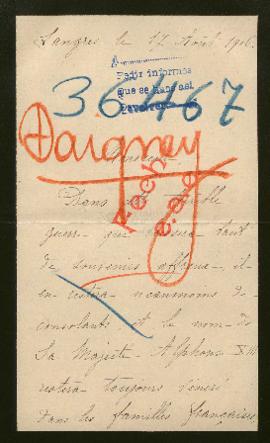 Langres le 17 Août 1916
Pedir informes
que se hans asi
36467
Daigney
Monsieur
Dans
guerre qui laissera tant
de souvenirs affreux il
en restera néanmoins de
consolants et le nom de
Sa Majesté Alphonse XIII
restera toujours vénéré
dans les familles françaises